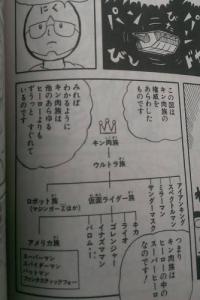 にく
この図は
キン肉族の
権威を
あらわした
ものです
みれば
わかるように
キン肉族は
他のあらゆる
ヒーローよりも
ずうっと すぐれて
いるのです
キン肉族
ウルトラ族
アイアンキング
スペクトルマン
ミラーマン
サンダーマスク
キカ
ライオ
ゴレンジャー
イナズマン
バロム・1
仮面ライダー族
ロボット族
(マジンガーZほか)
アメリカ族
スーパーマン
スパイダーマン
バットマン
ファンタスティックフォー
つまり
キン肉族は
ヒーローの中の
スーパーヒーロー
なのです!